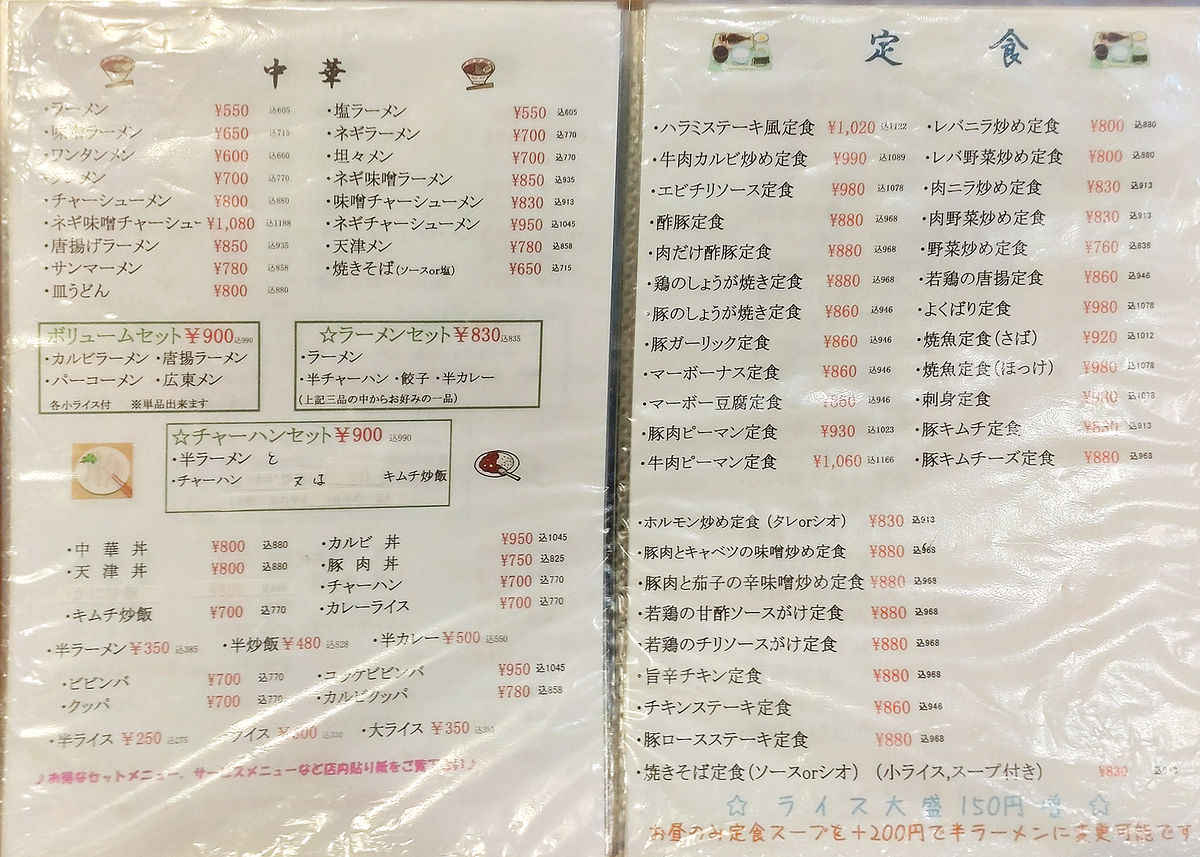 中華
・ラーメン ¥550 込605
・味噌ラーメン ¥650 込715
・ワンタンメン ¥600 込660
メン ¥700 込770
・チャーシューメン ¥800 込880
・ネギ味噌チャーシュー ¥1,080 込1188
・唐揚げラーメン ¥850 込935
・サンマーメン ¥780 込858
・皿うどん ¥800 込880
・塩ラーメン ¥550 込605
・ネギラーメン ¥700 込770
・坦々メン ¥700 込770
・ネギ味噌ラーメン ¥850 込935
・味噌チャーシューメン ¥830 込913
・ネギチャーシューメン ¥950 込1045
・天津メン ¥780 込858
・焼きそば(ソースor塩) ¥650 込715
ボリュームセット¥900込990
・カルビラーメン ・唐揚ラーメン
・パーコーメン ・広東メン
各小ライス付 ※単品出来ます
☆ラーメンセット¥830込835
・ラーメン
・半チャーハン ・餃子 ・半カレー
(上記三品の中からお好みの一品)
☆チャーハンセット¥900 込990
・半ラーメン と
・チャーハン 又は キムチ炒飯
・中華丼 ¥800 込880
・天津丼 ¥800 込880
・キムチ炒飯 ¥700 込770
・カルビ丼 ¥950 込1045
・豚肉丼 ¥750 込825
・チャーハン ¥700 込770
・カレーライス ¥700 込770
・半ラーメン¥350 込385 ・半炒飯¥480 込528 ・半カレー¥500 込550
・ビビンバ ¥700 込770
・クッパ ¥700 込770
・ユッケビビンバ ¥950 込1045
・カルビクッパ ¥780 込858
・半ライス ¥250 込275 ライス 込330 ・大ライス ¥350 込385
♪お得なセットメニュー、サービスメニューなど店内貼り紙をご覧下さい♪
定食
・ハラミステーキ風定食 ¥1,020 込1122
・牛肉カルビ炒め定食 ¥990 込1089
・エビチリソース定食 ¥980 込1078
・酢豚定食 ¥880 込968
・肉だけ酢豚定食 ¥880 込968
・鶏のしょうが焼き定食 ¥880 込968
・豚のしょうが焼き定食 ¥860 込946
・豚ガーリック定食 ¥860 込946
・マーボーナス定食 ¥860 込946
・マーボー豆腐定食 込946
・豚肉ピーマン定食 ¥930 込1023
・牛肉ピーマン定食 ¥1,060 込1166
・レバニラ炒め定食 ¥800 込880
・レバ野菜炒め定食 ¥800 込880
・肉ニラ炒め定食 ¥830 込913
・肉野菜炒め定食 ¥830 込913
・野菜炒め定食 ¥760 込836
・若鶏の唐揚定食 ¥860 込946
・よくばり定食 ¥980 込1078
・焼魚定食(さば) ¥920 込1012
・焼魚定食(ほっけ) ¥980 込1078
・刺身定食 込1078
・豚キムチ定食 込913
・豚キムチーズ定食 ¥880 込968
・ホルモン炒め定食 (タレorシオ) ¥830 込913
・豚肉とキャベツの味噌炒め定食 ¥880 込968
・豚肉と茄子の辛味噌炒め定食 ¥880 込968
・若鶏の甘酢ソースがけ定食 ¥880 込968
・若鶏のチリソースがけ定食 ¥880 込968
・旨辛チキン定食 ¥880 込968
・チキンステーキ定食 ¥860 込946
・豚ロースステーキ定食 ¥880 込968
・焼きそば定食(ソースorシオ) (小ライス,スープ付き) ¥830 込913
☆ ライス大盛150円増 ☆
お昼のみ定食スープを+200円で半ラーメンに変更可能です